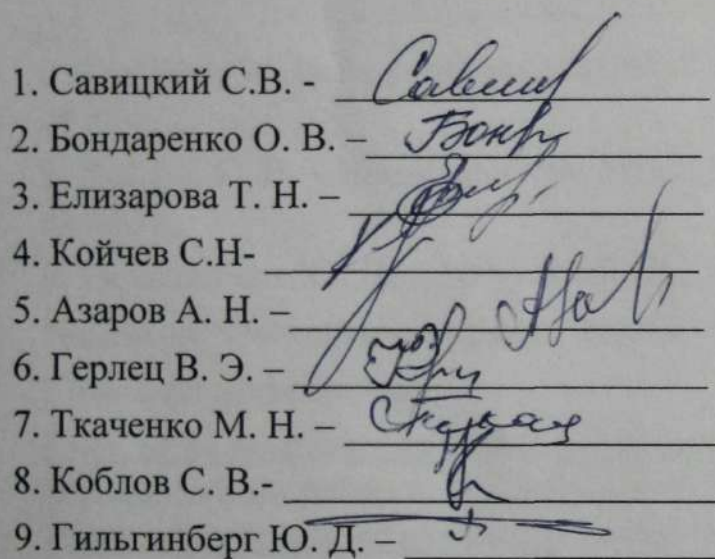 1. Савицкий С.В. -
2. Бондаренко О. В. –
3. Елизарова Т. Н. –
4. Койчев С.Н-
5. Азаров А. Н. –
6. Герлец В. Э. –
7. Ткаченко М. Н. –
8. Коблов С. В.-
9. Гильгинберг Ю. Д. –